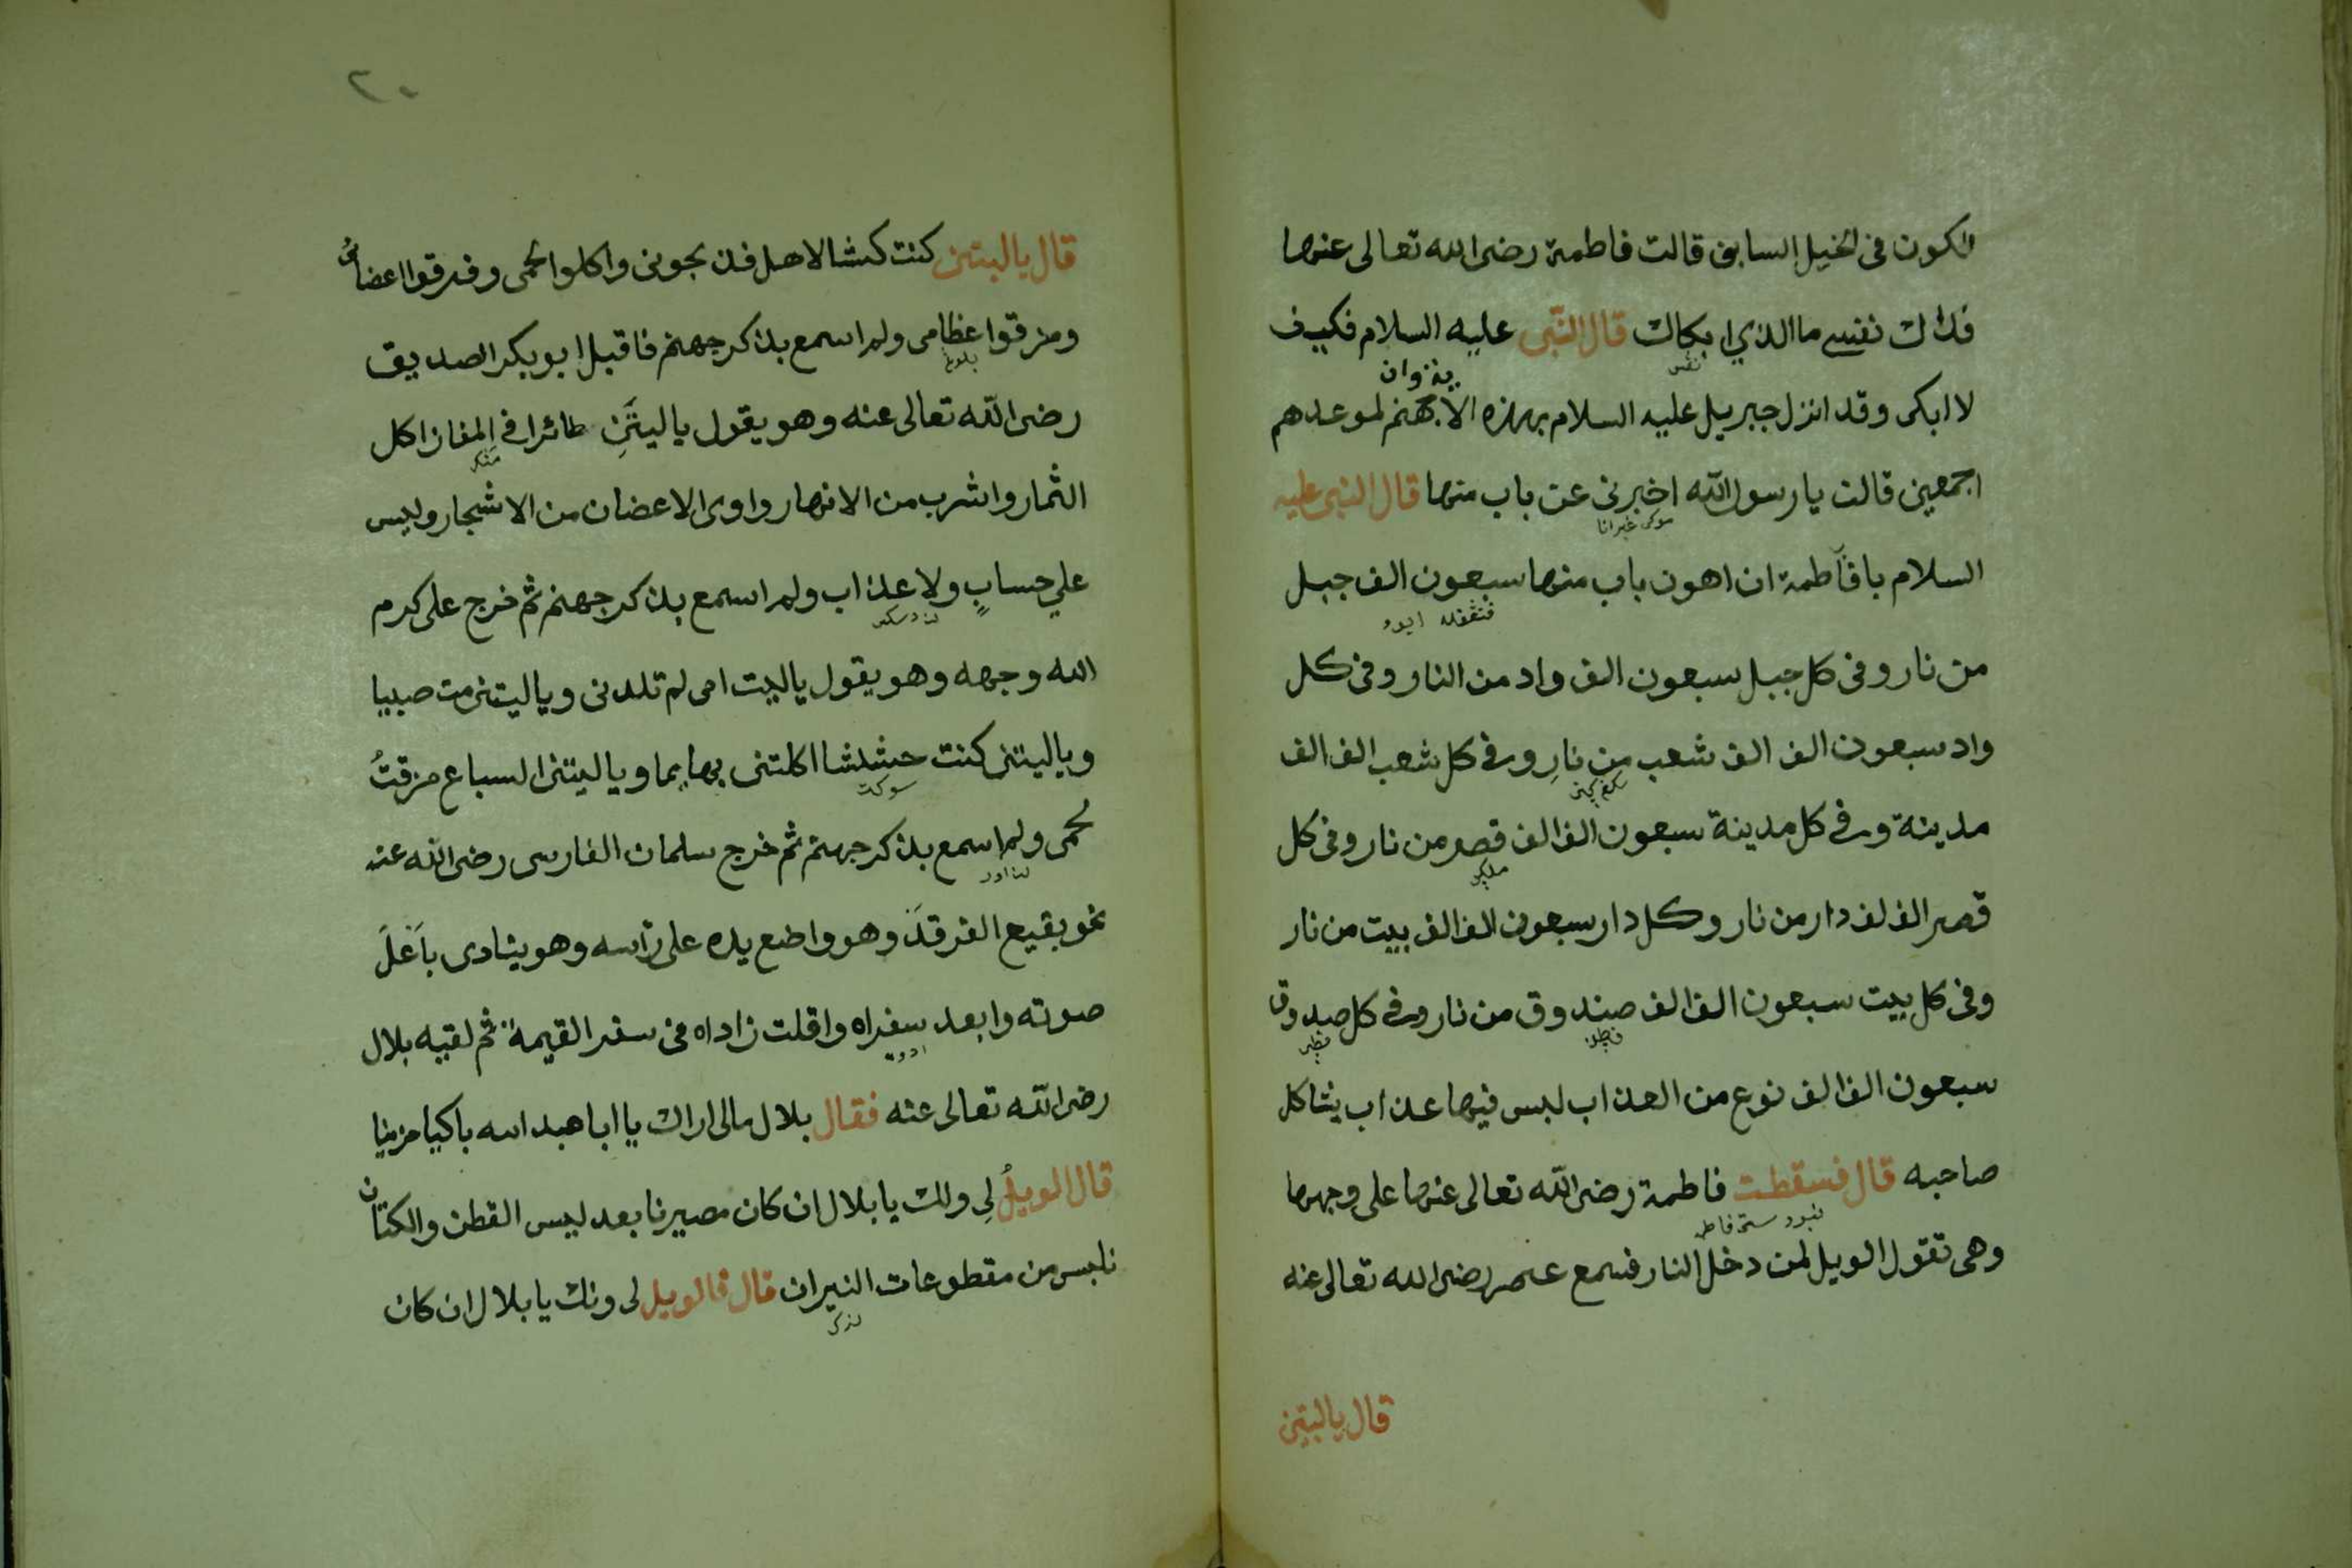 اكون فى الخيل السابق قالت فاطمة رضى الله تعالى عنها
فداك نفسے ما الذي ابكاك قال النّبى عليه السلام فكيف
لا ابكى وقد انزل جبريل عليه السلام بهذه الاية وان جهنم لموعدهم
اجمعين قالت يا رسول الله اخبرنى عن باب منها قال النبى عليه
السلام يا فاطمة ان اهون باب منها سبعون الف جبل
من نار وفى كل جبل سبعون الف واد من النار وفى كل
واد سبعون الف الف شعب من نارٍ وفے كل شعب الف الف
مدينة وفے كل مدينة سبعون الف الف قصر من نار وفى كل
قصر الف لف دار من نار وكل دار سبعون الف الف بيت من نار
وفى كل بيت سبعون الف الف صندوق من نار وفے كل صبدوق
سبعون الف الف نوع من العذاب ليس فيها عذاب يشاكل
صاحبه قال فسقطت فاطمة رضى الله تعالى عنها على وجهها
وهى تقول الويل لمن دخل النار فسمع عمر رضى الله تعالى عنه
قال ياليتنى
٢٠
قال ياليتنى كنت كبشا لاهل فذبجونى واكلوا لحمى وفرقوا اعضائى
ومزقوا عظامى ولم اسمع بذكر جهنم فاقبل ابو بكر الصديق
رضى الله تعالى عنه وهو يقول ياليتَنِى طائرا فى المفاز اكل
الثمار واشرب من الانهار واوى الاعضان من الاشجار وليس
علي حسابٍ ولا عذاب ولم اسمع بذكر جهنم ثم خرج على كرم
الله وجهه وهو يقول ياليت امى لم تلدنى وياليتنى مت صبيا
وياليتنى كنت حشيشا اكلتنى بهايما وياليتنى السباع مزقتُ
لحمى ولم اسمع بذكر جهنم ثم خرج سلمان الفارسى رضى الله عنه
نحو بقيع الغرقد وهو واضع يده على رأسه وهو ينادى باَعلَ
صوته وابعد سفراه واقلت زاداه فى سفر القيمة ثم لقيه بلال
رضى الله تعالى عنه فقال بلال مالى اراك يا ابا عبد الله باكيا حزينا
قال الويلُ لِى ولك يا بلال ان كان مصيرنا بعد لبس القطن والكتان
نلبس من مقطوعات النيران قال فالويل لى ونك يا بلال ان كان